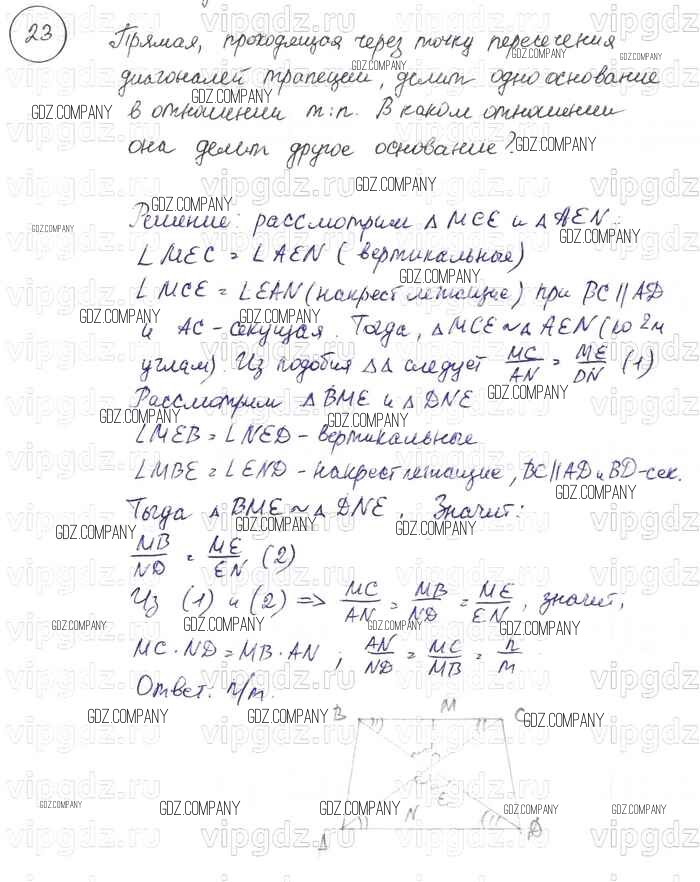 23
Прямая, проходящая через точку пересечения
диагоналей трапеции, делит одно основание
в отношении m:n. В каком отношении
она делит другое основание?
Решение: рассмотрим △ MCE и △ AEN:
∠ MEC = ∠ AEN ( вертикальные)
∠ MCE = ∠ EAN (накрест лежащие) при BC || AD
и AC - секущая. Тогда, △ MCE ~ △ AEN (по 2м
углам). Из подобия △△ следует MC/AN = ME/DN (1)
Рассмотрим △ BME и △ DNE
∠ MEB = ∠ NED - вертикальные
∠ MBE = ∠ END - накрест лежащие, BC || AD и BD - сек.
Тогда △ BME ~ △ DNE. Значит:
MB/ND = ME/EN (2)
Из (1) и (2) => MC/AN = MB/ND = ME/EN, значит,
MC · ND = MB · AN ; AN/ND = MC/MB = n/m
Ответ: n/m.
B M C
E
A N D
GDZ.COMPANY
vipgdz.ru